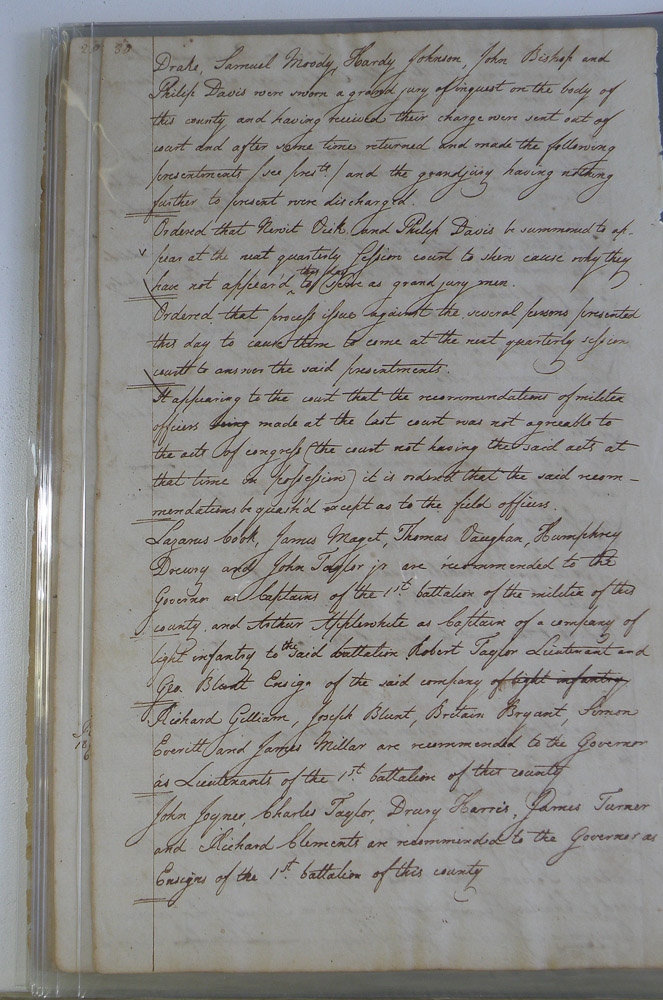 Drake, Samuel Moody, Hardy Johnson, John Bishop and
Philip Davis were sworn a grand jury of inquest on the body of
this county and having received their charge were sent out of
court and after some time returned and made the following
presentments (see pres.ts) and the grand jury having nothing
further to present were discharged.
Ordered that Newit and Philip Davis be summoned to ap-
pear at the next quarterly session court to shew cause why they
have not appear'd this day to serve as grand jury men.
Ordered that process issue against the several persons presented
this day to cause them to come at the next quarterly session
court to answer the said presentments.
It appearing to the court that the recommendations of militia
officers being made at the last court was not agreable to
the acts of congress (the court not having the said acts at
that time in possession) it is ordered that the said recom-
mendations be quash'd except as to the field officers.
Lazarus Cook, James Maget, Thomas Vaughan, Humphrey
Drewry and John Taylor jr are recommended to the
Governor as Captains of the 1st. battalion of the militia of this
county and Arthur Applewhite as Captain of a company of
light infantry to the said battalion Robert Taylor Lieutenant and
Geo. Blunt Ensign of the said company of light infantry
Richard Gilliam, Joseph Blunt, Britain Bryant, Simon
Everitt and James Millar are recommended to the Governor
as Lieutenants of the 1st. battalion of this county
John Joyner, Charles Taylor, Drury Harris, James Turner
and Richard Clements are recommended to the Governor as
Ensigns of the 1st. battalion of this county